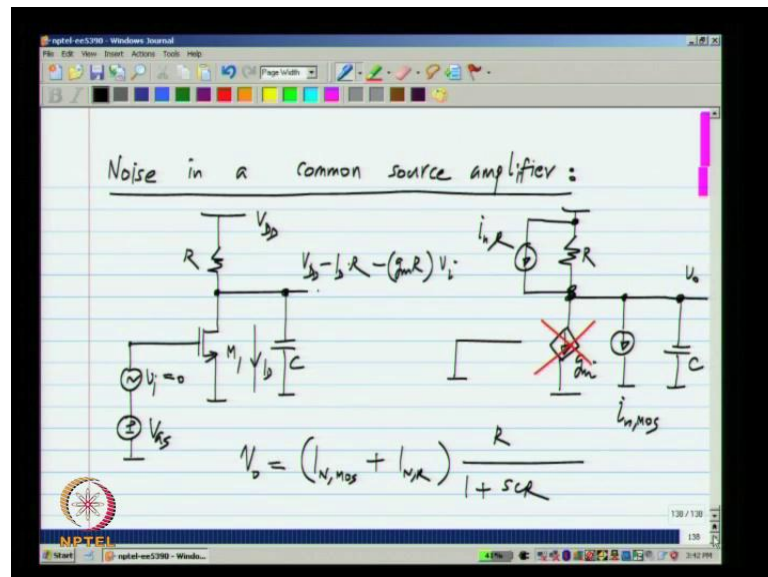 nptel-ee5390 - Windows Journal
File Edit View Insert Actions Tools Help
Page Width
Noise in a common source amplifier :
V_DD
R
V_DD - I_D R - (g_m R) v_i
M_1
I_D
C
v_i = 0
V_GS
i_n,R
R
v_o
g_m
i_n,MOS
C
V_o = (I_N,MOS + I_N,R) R / (1 + sCR)
138 / 138
138
NPTEL
Start
nptel-ee5390 - Windo...
41%
3:42 PM